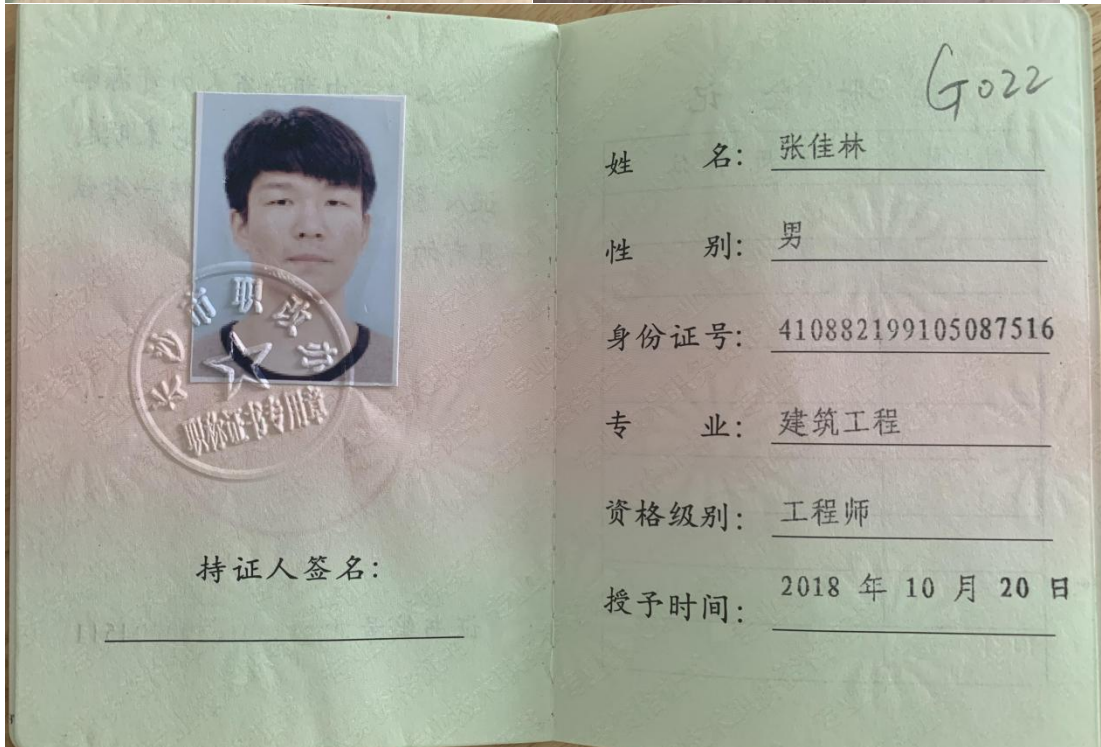 长沙市职改办
职称证书专用章
持证人签名：
G022
姓 名： 张佳林
性 别： 男
身份证号： 410882199105087516
专 业： 建筑工程
资格级别： 工程师
授予时间： 2018 年 10 月 20 日